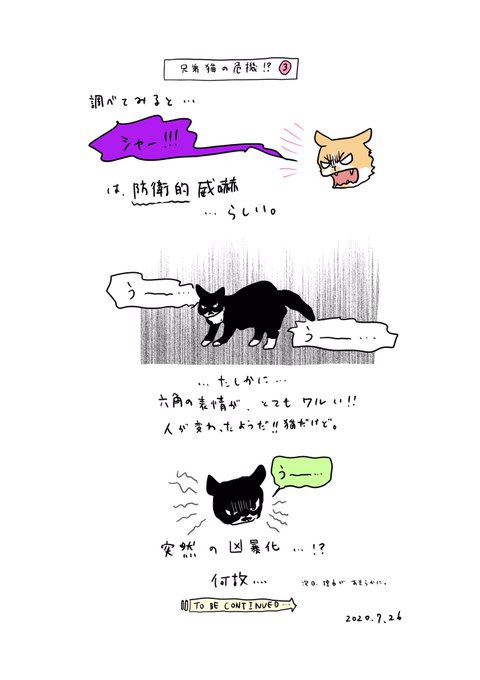 兄弟猫の危機!? ③
調べてみると…
シャー!!!
は、防衛的威嚇
…らしい。
うーー…
うーー…
…たしかに…
六角の表情が、とてもワルい!!
人が変わったようだ!!猫だけど。
うーー…
突然の凶暴化…!?
何故….
次回、理由があきらかに。
TO BE CONTINUED…
2020.7.26